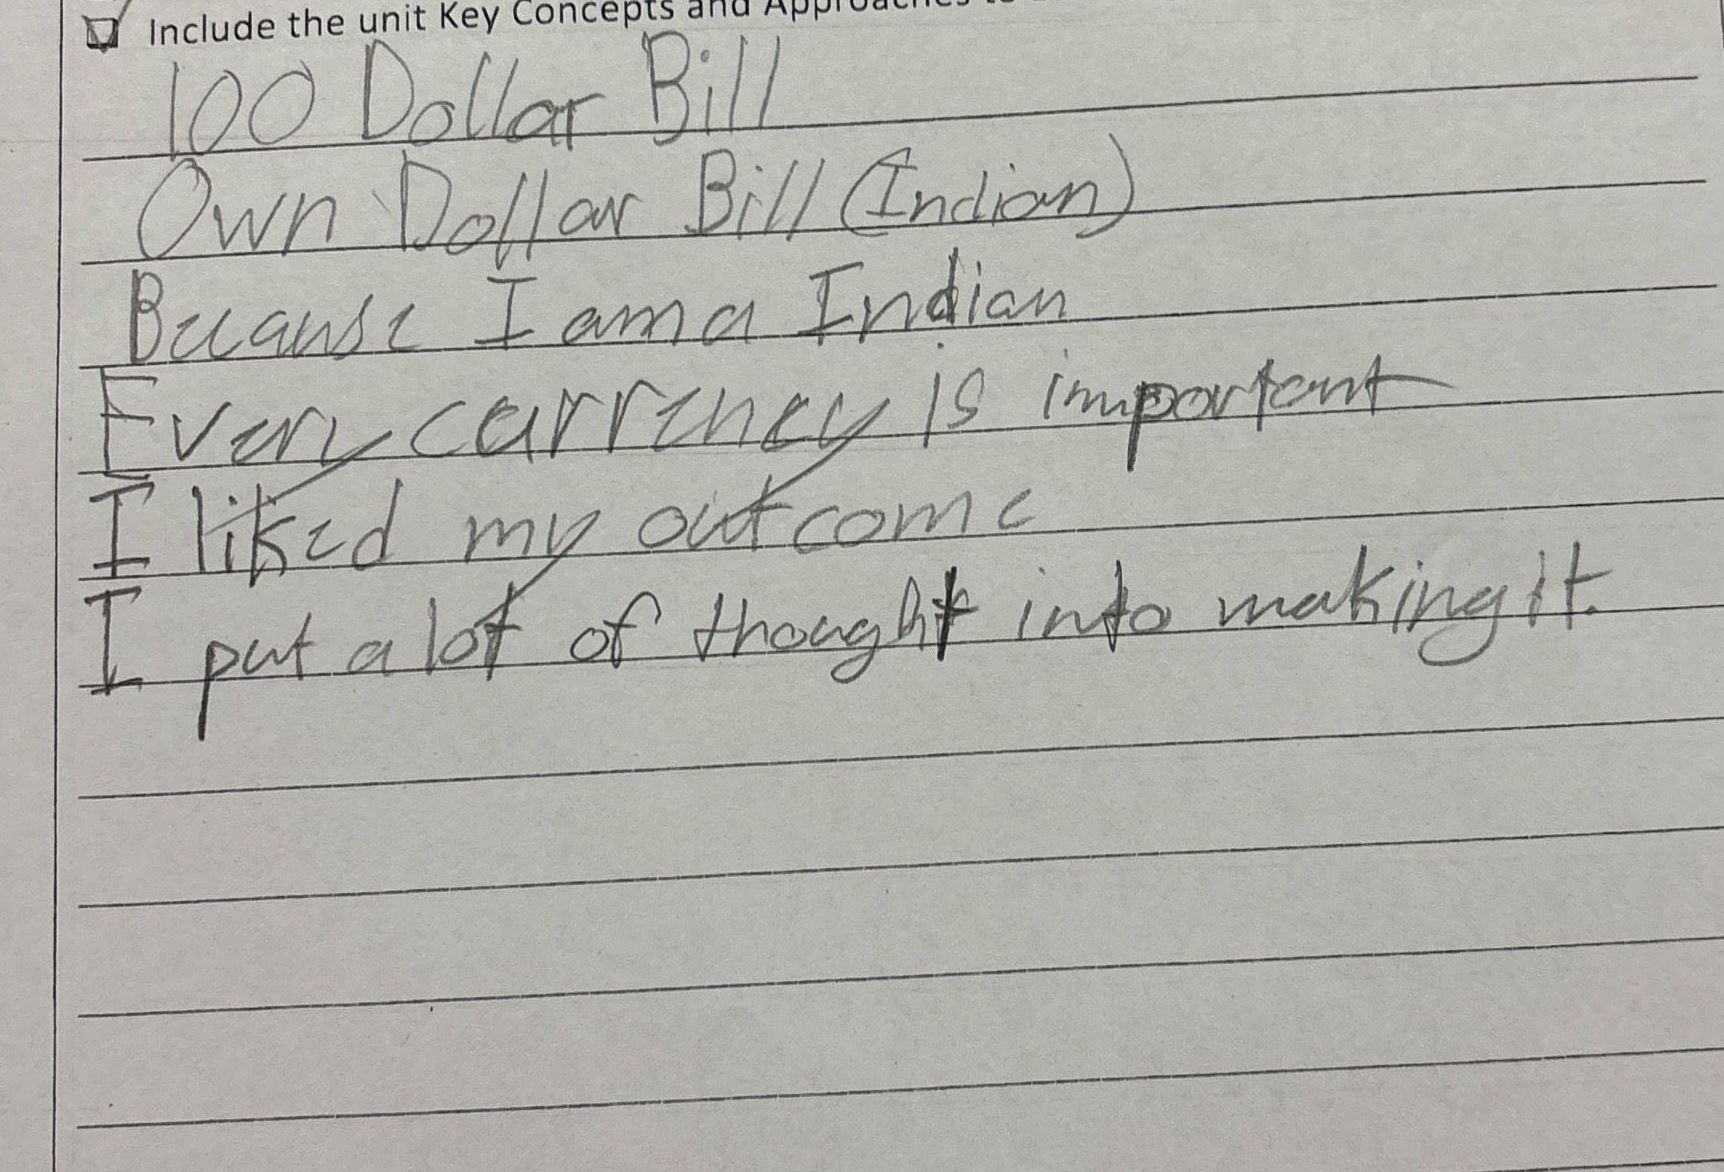 Include the unit Key Concepts and Approaches to
100 Dollar Bill
Own Dollar Bill (Indian)
Because I am a Indian
Every currency is important
I liked my outcome
I put a lot of thought into making it.